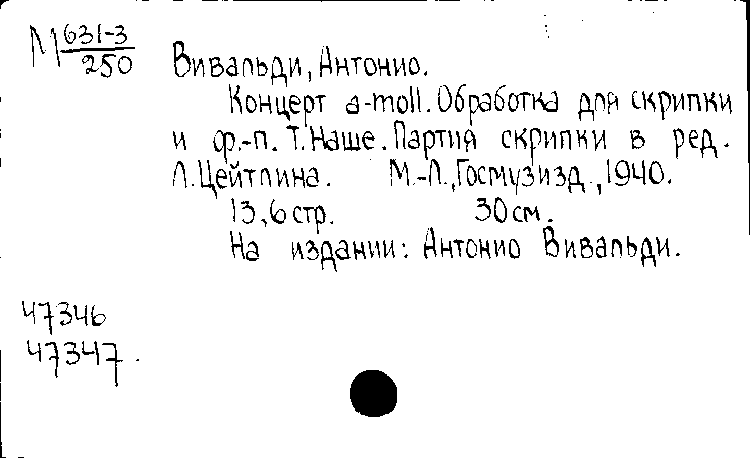 М 631-3
250
Вивальди, Антонио.
Концерт a-moll. Обработка для скрипки
и ф.-п. Т. Наше. Партия скрипки в ред.
Л. Цейтлина. М.-Л., Госмузизд., 1940.
13, 6 стр. 30 см.
На издании: Антонио Вивальди.
47346
47347.